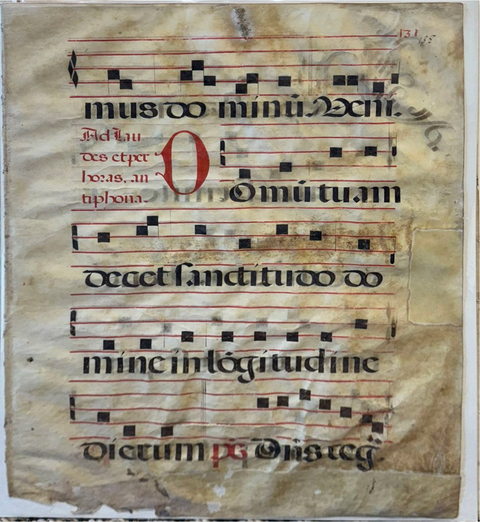 131
mus do minū. Veni.
Ad Lau
des et per
horas. an
tiphona.
O Domū tuam
decet sanctitudo do
mine in lōgitudine
dierum ps Dn̄s reg̃